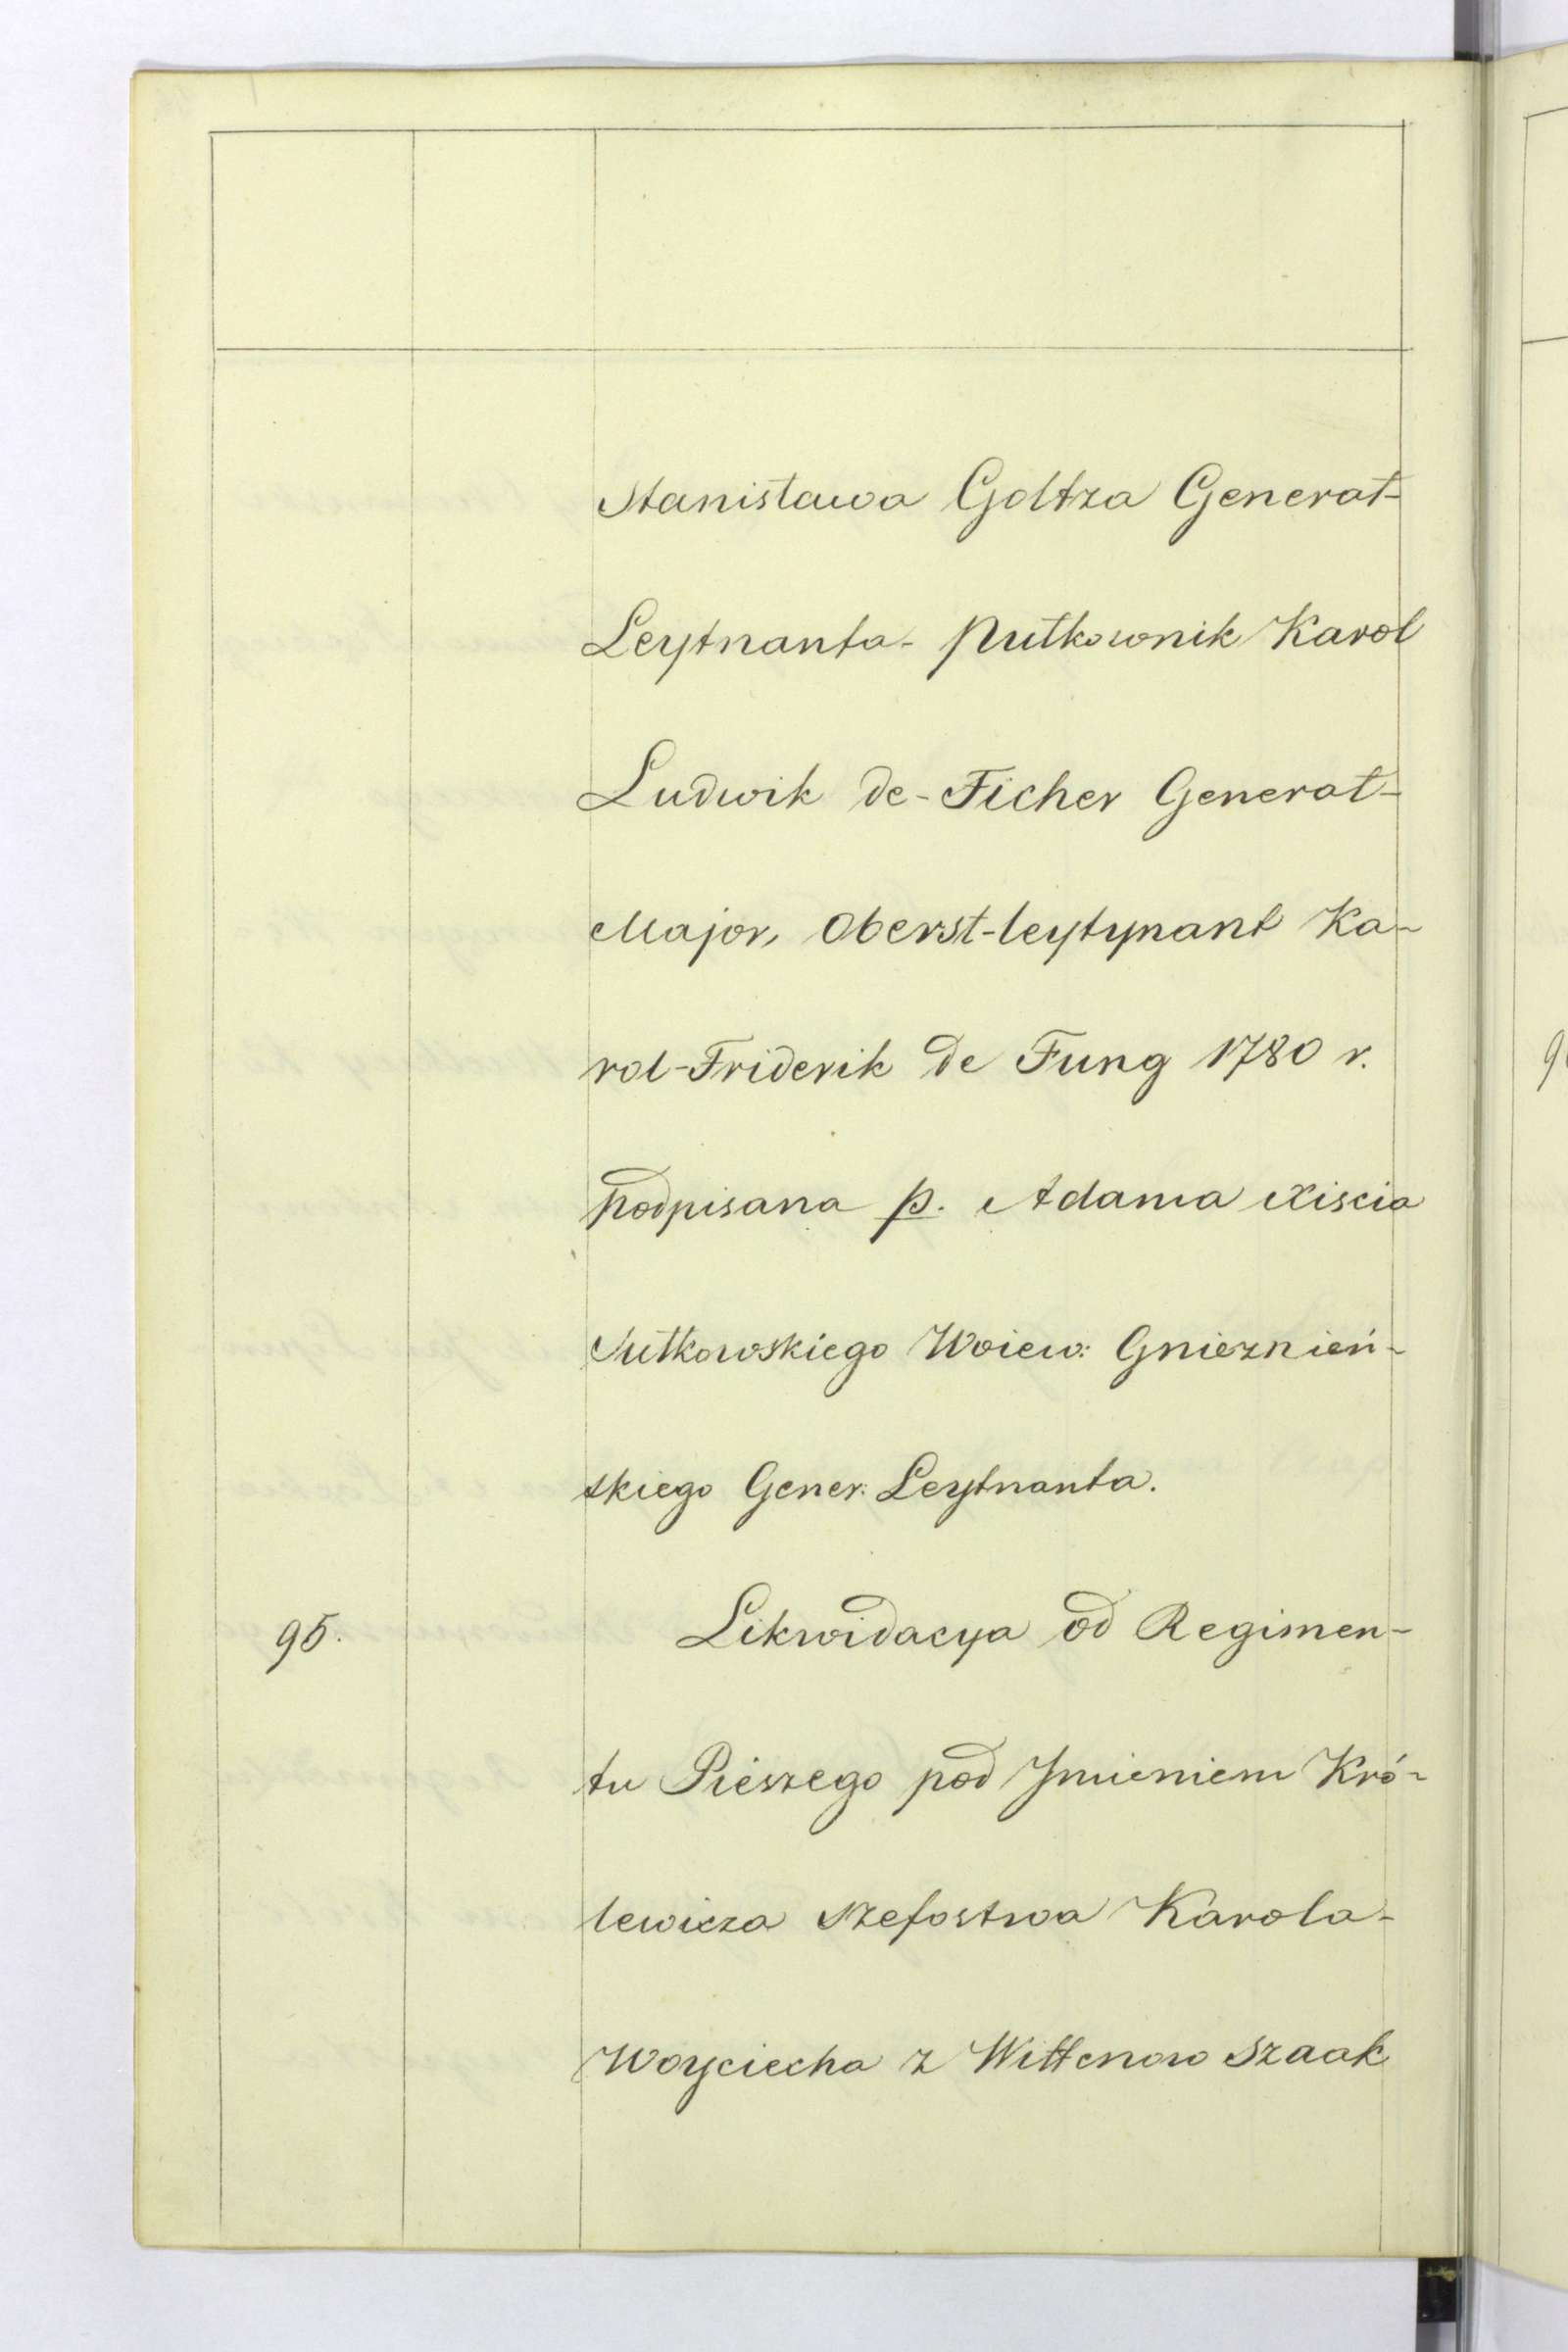 Stanisława Goltza Generał-
Leytnanta- pułkownik Karol
Ludwik de-Ficher Generał-
Major, Oberst-leytynant Ka-
rol-Friderik de Fung 1780 r.
podpisana p. Adama Xiscia
Sułkowskiego Woiew: Gnieznień-
skiego Gener: Leytnanta.
95. Likwidacya od Regimen-
tu Pieszego pod Jmieniem Kró-
lewicza szefostwa Karola-
Woyciecha z Wittenow Szaak